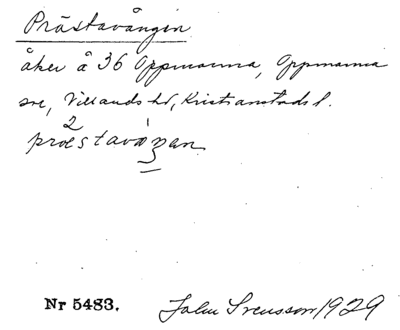 Prästavången
åker å 36 Oppmanna, Oppmanna
sn, Villands hd, Kristianstads l.
2
præstavaŋan
Nr 5483.
John Svensson 1929